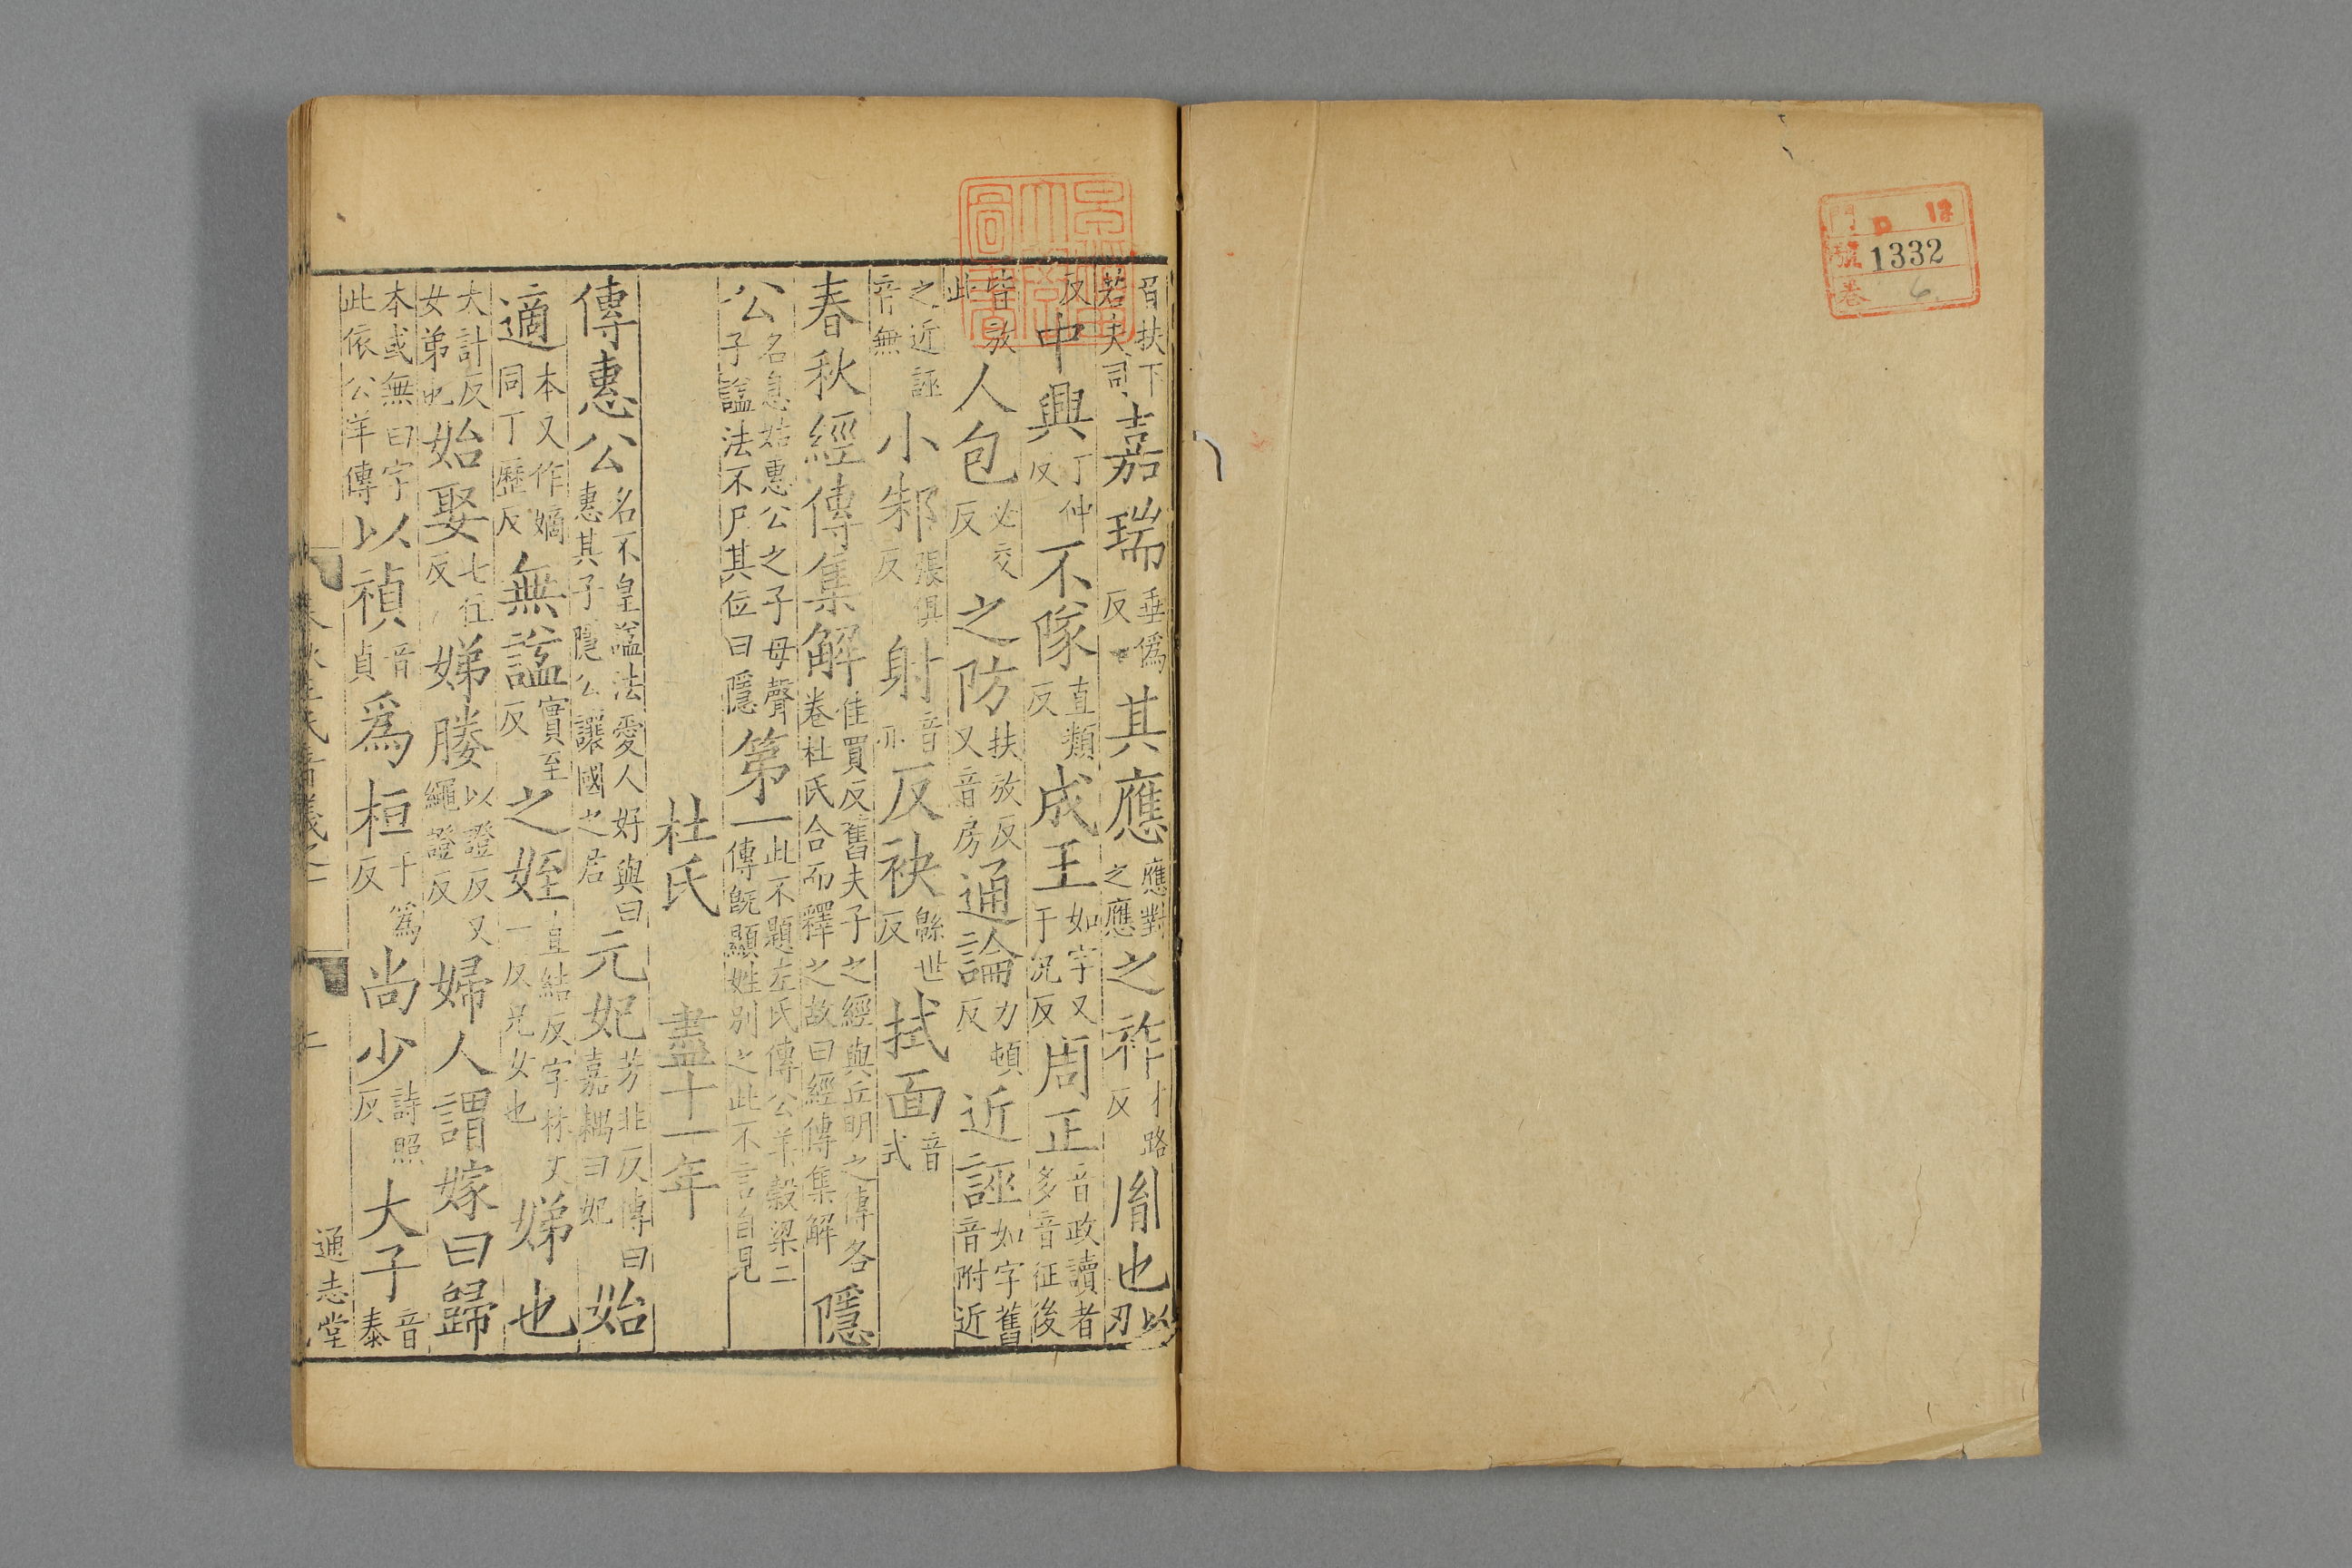 門 ロ 12
號 1332
卷 6
音扶下若夫同嘉瑞垂僞反其應應對之應之祚才路反胤也以刃
反中興丁仲反不隊直類反成王如字又于況反周正音政讀者多音征後
皆放此人包必交反之防扶放反又音房通論力頓反近誣如字舊音附近
之近誣音無小邾張俱反射音亦反袂緜世反拭面音式
春秋經傳集解佳買反舊夫子之經與丘明之傳各卷杜氏合而釋之故曰經傳集解隱
公名息姑惠公之子母聲子謚法不尸其位曰隱第一此不題左氏傳公羊穀梁二傳旣顯姓別之此不言自見
杜氏 盡十一年
傳惠公名不皇謚法愛人好與曰惠其子隱公讓國之君元妃芳非反傳曰嘉耦曰妃始
適本又作嫡同丁歷反無謚實至反之姪直結反字林丈一反兄女也娣也
大計反女弟也始娶七住反娣媵以證反又繩證反婦人謂嫁曰歸
本或無曰字此依公羊傳以禎音貞爲桓于爲反尚少詩照反大子音泰
通志堂